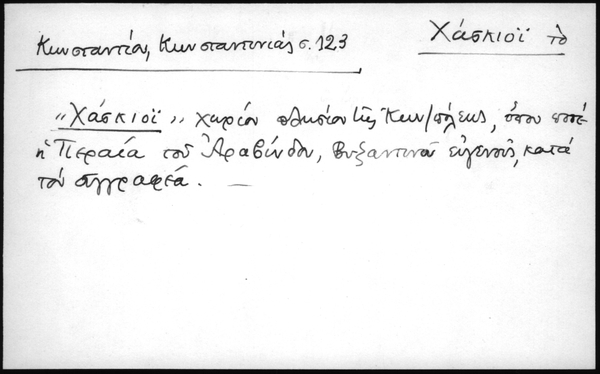 Χάσκιοϊ τὸ
Κωνσταντίου, Κωνσταντινιάς σ. 123
„Χάσκιοϊ„ χωρίον πλησίον τῆς Κων/πόλεως, ὅπου ποτέ
ἡ Περαία τοῦ Ἀραβίνδου, Βυζαντινοῦ εὐγενοῦς, κατά
τόν συγγραφέα. —